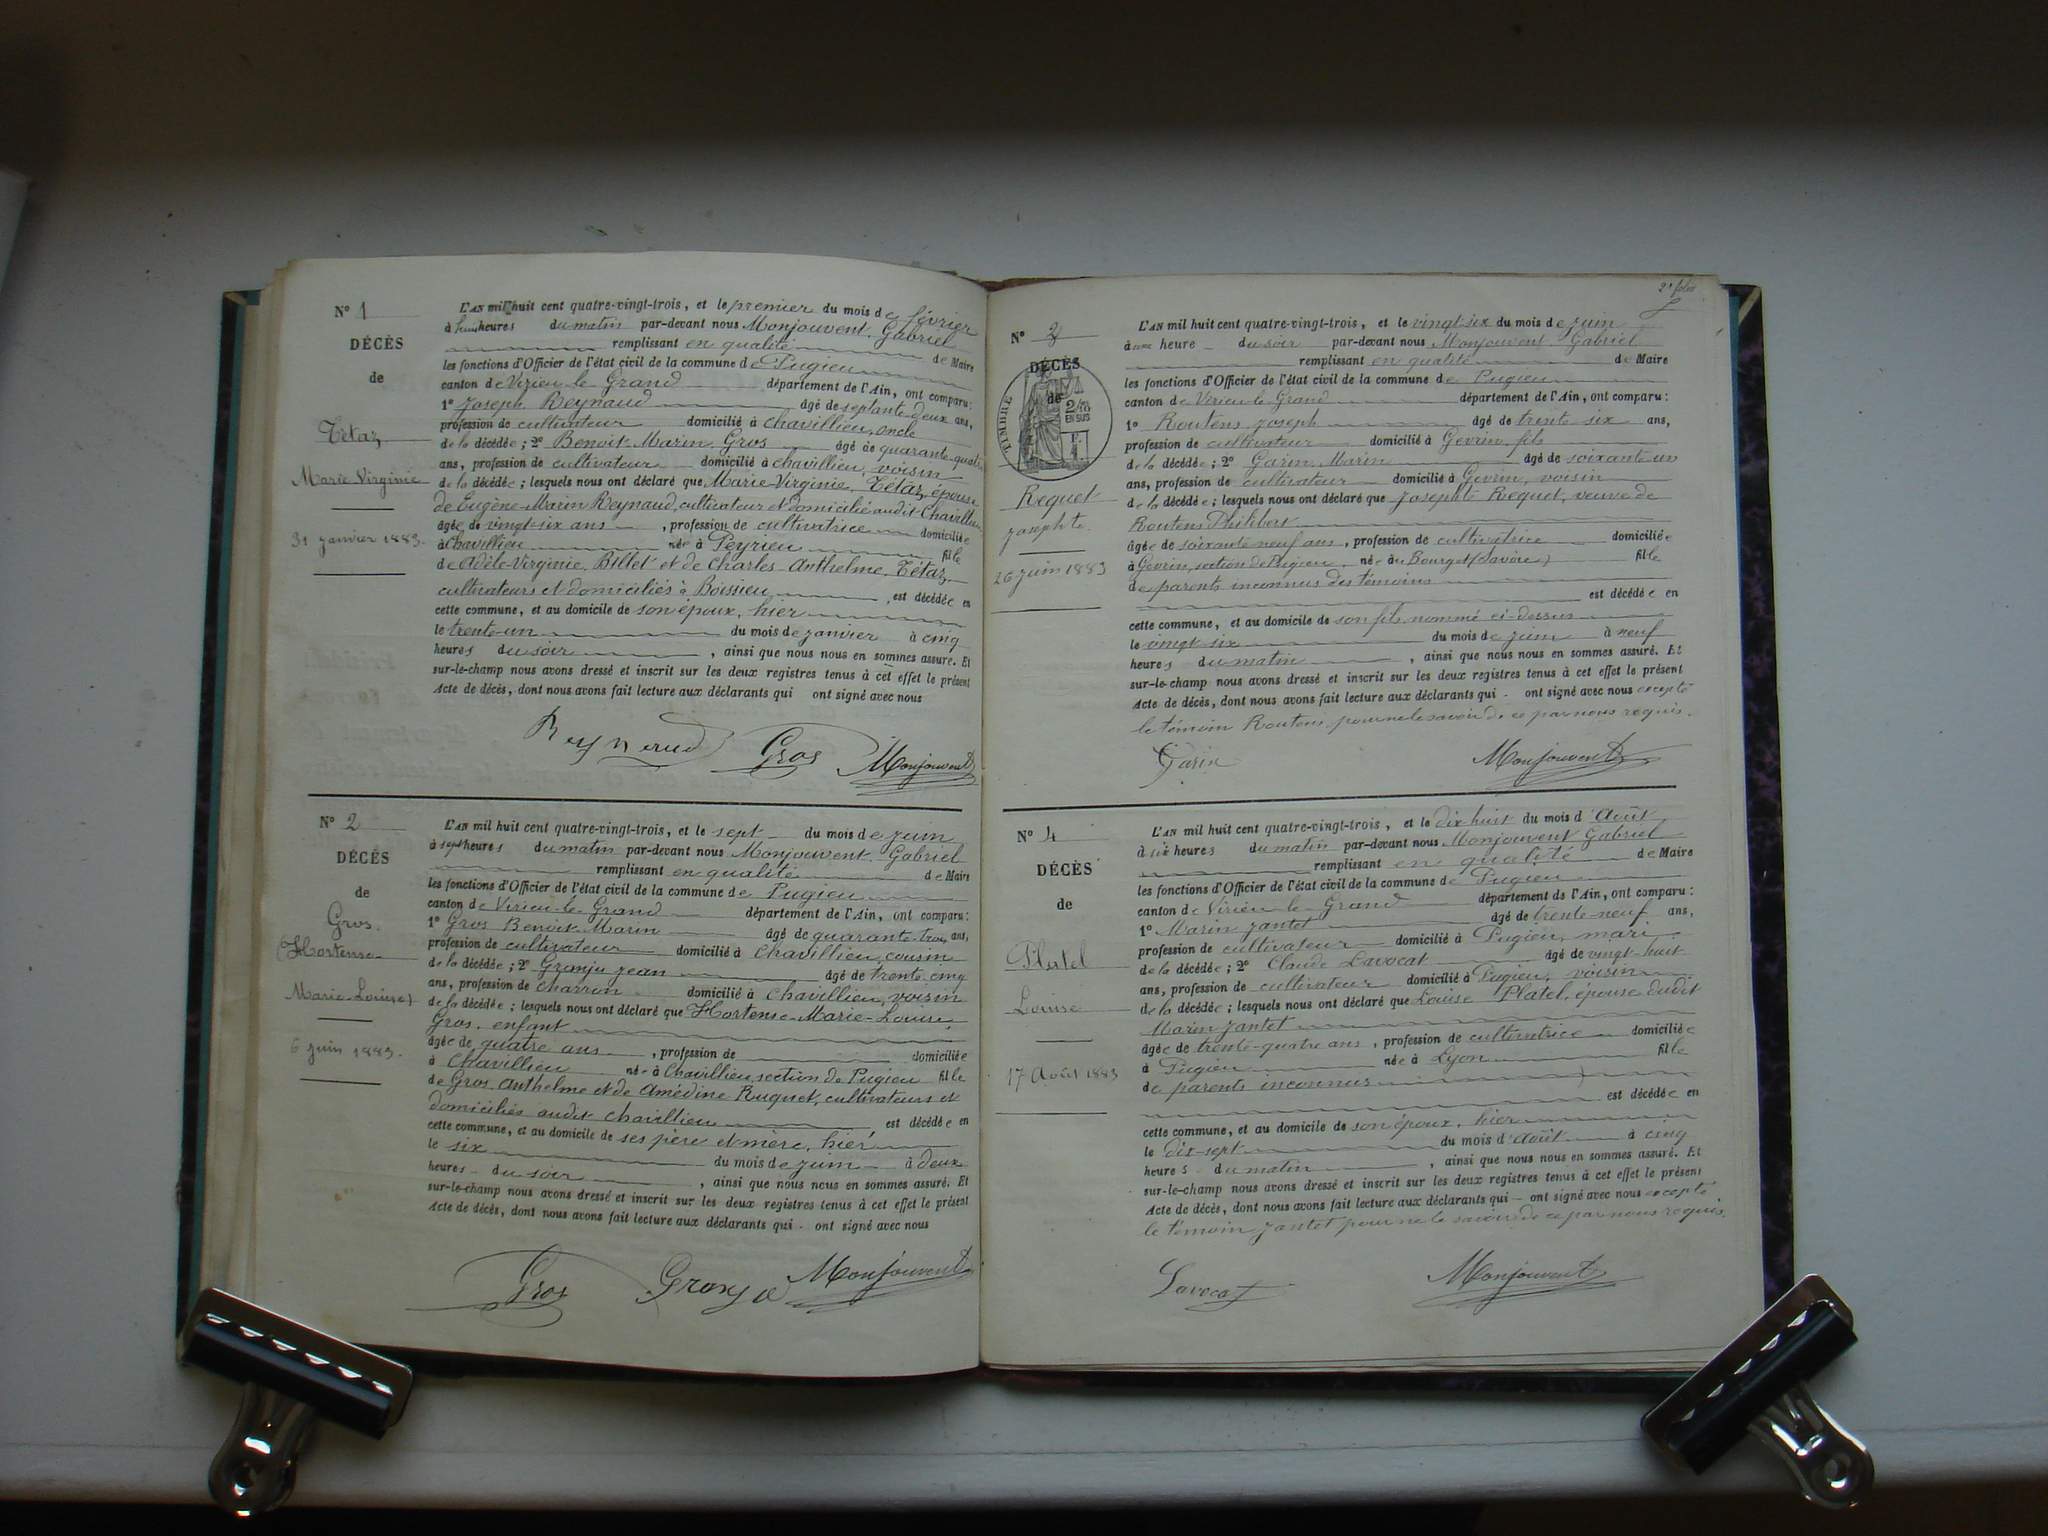 N° 1
DÉCÈS
de
Tétaz
Marie Virginie
31 janvier 1883.
L'AN mil huit cent quatre-vingt-trois, et le premier du mois de février
à huit heures du matin par-devant nous Monjouvent Gabriel
remplissant en qualité de Maire
les fonctions d'Officier de l'état civil de la commune de Pugieu
canton de Virieu-le-Grand département de l'Ain, ont comparu:
1° Joseph Reynaud âgé de septante-deux ans,
profession de cultivateur domicilié à Chavillieu, oncle
de la décédée; 2° Benoit-Marin Gros âgé de quarante-quatre
ans, profession de cultivateur domicilié à Chavillieu, voisin
de la décédée; lesquels nous ont déclaré que Marie-Virginie Tétaz, épouse
de Eugène-Marin Reynaud, cultivateur et domicilié audit Chavillieu
âgée de vingt-six ans, profession de cultivatrice domiciliée
à Chavillieu née à Peyrieu fille
de Adèle-Virginie Billet et de Charles-Anthelme Tétaz,
cultivateurs et domiciliés à Boissieu, est décédée en
cette commune, et au domicile de son époux, hier
le trente-un du mois de janvier à cinq
heures du soir, ainsi que nous nous en sommes assuré. Et
sur-le-champ nous avons dressé et inscrit sur les deux registres tenus à cet effet le présent
Acte de décès, dont nous avons fait lecture aux déclarants qui ont signé avec nous
Reynaud Gros Monjouvent
N° 2
DÉCÈS
de
Gros
(Hortense
Marie-Louise)
6 juin 1883.
L'AN mil huit cent quatre-vingt-trois, et le sept du mois de juin
à sept heures du matin par-devant nous Monjouvent Gabriel
remplissant en qualité de Maire
les fonctions d'Officier de l'état civil de la commune de Pugieu
canton de Virieu-le-Grand département de l'Ain, ont comparu:
1° Gros Benoit Marin âgé de quarante-trois ans,
profession de cultivateur domicilié à Chavillieu, cousin
de la décédée; 2° Granju Jean âgé de trente-cinq
ans, profession de charron domicilié à Chavillieu, voisin
de la décédée; lesquels nous ont déclaré que Hortense-Marie-Louise
Gros, enfant
âgée de quatre ans, profession de domiciliée
à Chavillieu née à Chavillieu, section de Pugieu fille
de Gros Anthelme et de Amédine Ruguet, cultivateurs et
domiciliés audit Chavillieu est décédée en
cette commune, et au domicile de ses père et mère, hier
le six du mois de juin à deux
heures du soir, ainsi que nous nous en sommes assuré. Et
sur-le-champ nous avons dressé et inscrit sur les deux registres tenus à cet effet le présent
Acte de décès, dont nous avons fait lecture aux déclarants qui ont signé avec nous
Gros Granju Monjouvent
2e folio
N° 3
DÉCÈS
de
TIMBRE
2/10
EN SUS
Requet
Josephte
26 juin 1883
L'AN mil huit cent quatre-vingt-trois, et le vingt-six du mois de juin
à une heure du soir par-devant nous Monjouvent Gabriel
remplissant en qualité de Maire
les fonctions d'Officier de l'état civil de la commune de Pugieu
canton de Virieu-le-Grand département de l'Ain, ont comparu:
1° Routens Joseph âgé de trente-six ans,
profession de cultivateur domicilié à Gevrin, fils
de la décédée; 2° Garin Marin âgé de soixante-un
ans, profession de cultivateur domicilié à Gevrin, voisin
de la décédée; lesquels nous ont déclaré que Josephte Requet, veuve de
Routens Philibert
âgée de soixante-neuf ans, profession de cultivatrice domiciliée
à Gevrin, section de Pugieu, née au Bourget (Savoie) fille
de parents inconnus des témoins
est décédée en
cette commune, et au domicile de son fils nommé ci-dessus
le vingt-six du mois de juin à neuf
heures du matin, ainsi que nous nous en sommes assuré. Et
sur-le-champ nous avons dressé et inscrit sur les deux registres tenus à cet effet le présent
Acte de décès, dont nous avons fait lecture aux déclarants qui - ont signé avec nous excepté
le témoin Routens, pour ne le savoir de ce par nous requis.
Garin Monjouvent
N° 4
DÉCÈS
de
Platel
Louise
17 Août 1883
L'AN mil huit cent quatre-vingt-trois, et le dix-huit du mois d'Août
à six heures du matin par-devant nous Monjouvent Gabriel
remplissant en qualité de Maire
les fonctions d'Officier de l'état civil de la commune de Pugieu
canton de Virieu-le-Grand département de l'Ain, ont comparu:
1° Marin Jantet âgé de trente-neuf ans,
profession de cultivateur domicilié à Pugieu, mari
de la décédée; 2° Claude Lavocat âgé de vingt-huit
ans, profession de cultivateur domicilié à Pugieu, voisin
de la décédée; lesquels nous ont déclaré que Louise Platel, épouse dudit
Marin Jantet
âgée de trente-quatre ans, profession de cultivatrice domiciliée
à Pugieu née à Lyon fille
de parents inconnus
est décédée en
cette commune, et au domicile de son époux, hier
le dix-sept du mois d'Août à cinq
heures du matin, ainsi que nous nous en sommes assuré. Et
sur-le-champ nous avons dressé et inscrit sur les deux registres tenus à cet effet le présent
Acte de décès, dont nous avons fait lecture aux déclarants qui - ont signé avec nous excepté
le témoin Jantet pour ne le savoir de ce par nous requis.
Lavocat Monjouvent